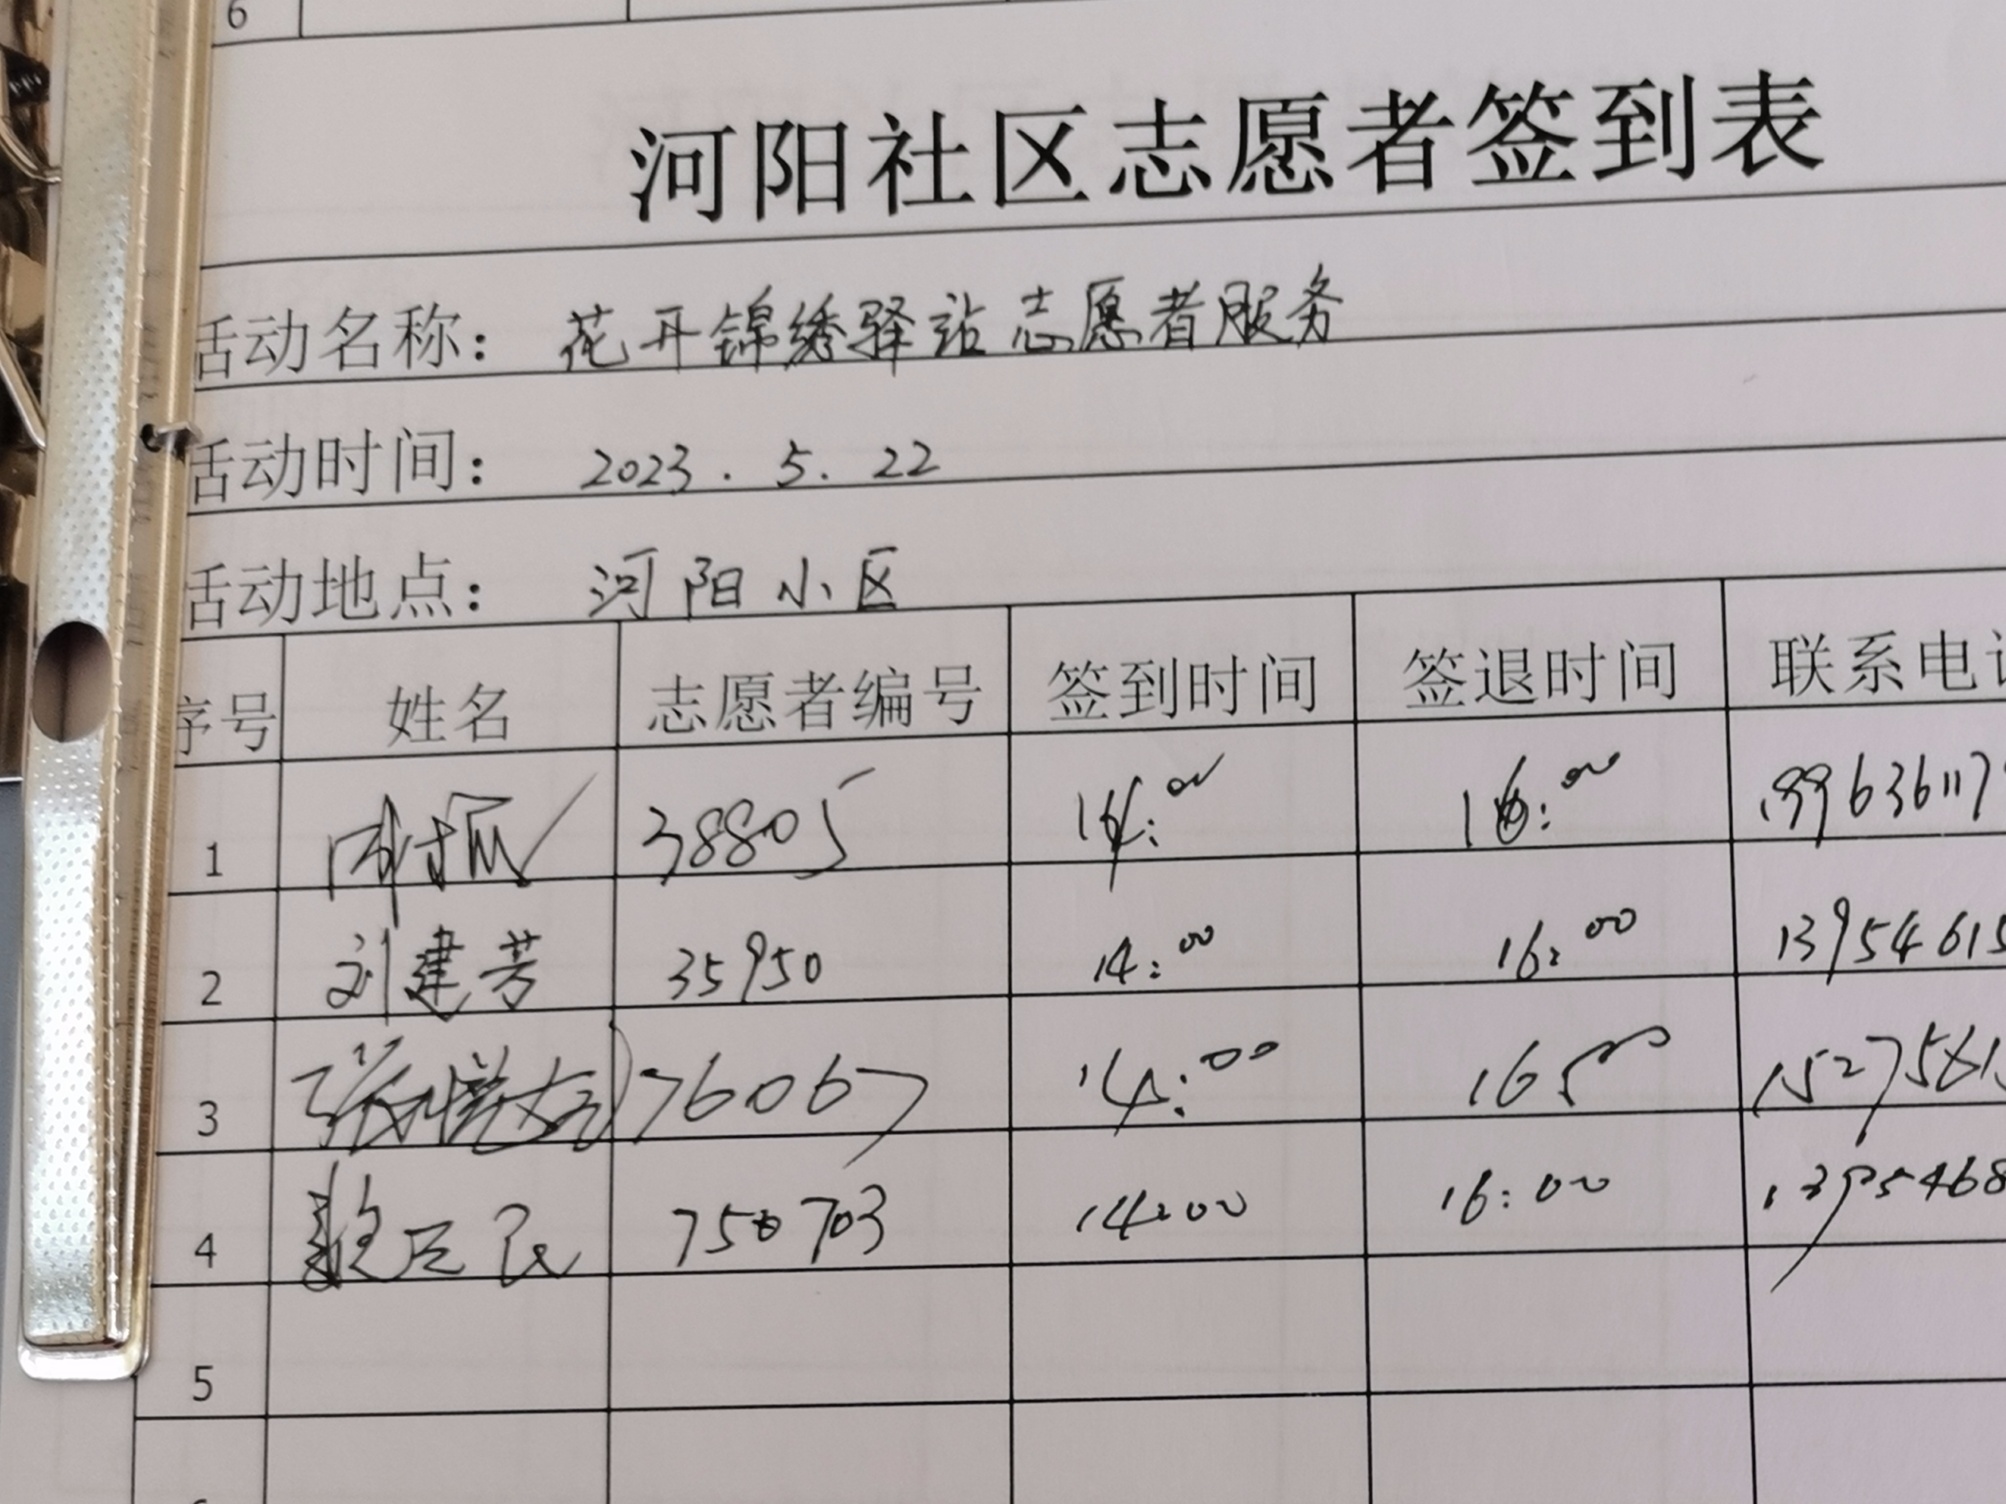 6
河阳社区志愿者签到表
活动名称： 花开锦绣驿站志愿者服务
活动时间： 2023.5.22
活动地点： 河阳小区
序号 姓名 志愿者编号 签到时间 签退时间 联系电话
1 38805 14:00 16:00 1996361179
2 刘建芳 35950 14:00 16:00 13954615
3 76067 14:00 16 1527561
4 750703 14:00 16:00 1395468
5